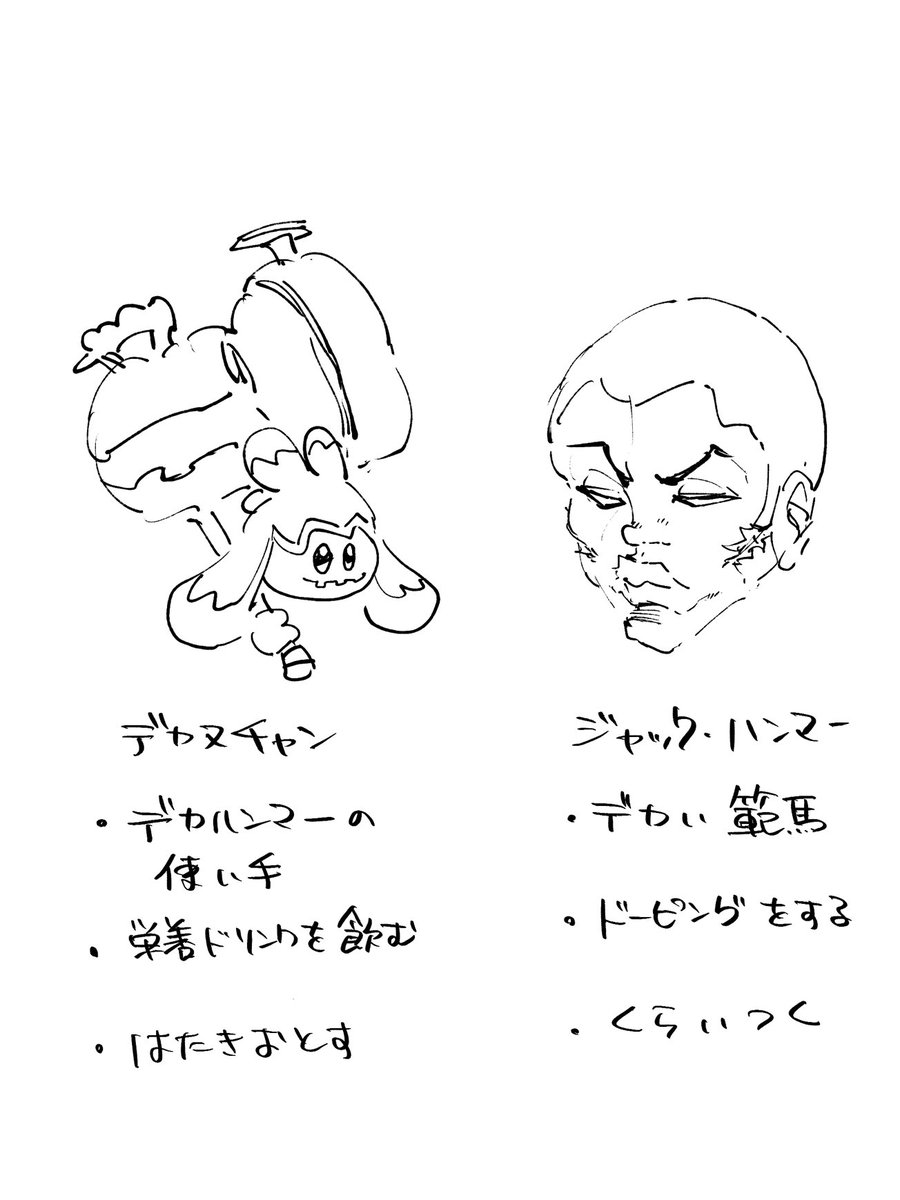 デカヌチャン
・デカハンマーの
使い手
・栄養ドリンクを飲む
・はたきおとす
ジャック・ハンマー
・デカい範馬
・ドーピングをする
・くらいつく